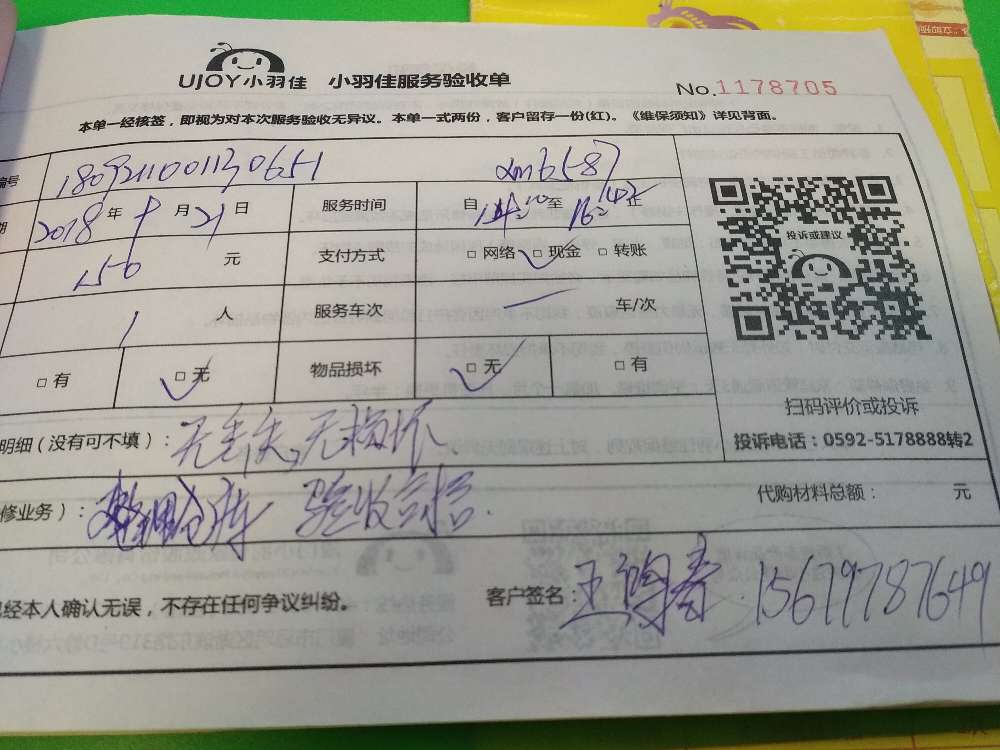 UJOY小羽佳 小羽佳服务验收单 No.1178705
本单一经核签，即视为对本次服务验收无异议。本单一式两份，客户留存一份(红)。《维保须知》详见背面。
编号 xm6587
2018年9月21日 服务时间 自14:10至16:40止
150元 支付方式 □网络 □现金 □转账
投诉或建议
1人 服务车次 一 车/次
□有 □无 物品损坏 □无 □有
扫码评价或投诉
明细（没有可不填）：无丢失，无损坏
投诉电话：0592-5178888转2
修业务）：整理仓库 验收合格.
代购材料总额： 元
已经本人确认无误，不存在任何争议纠纷。 客户签名：王鸿春.15679787649